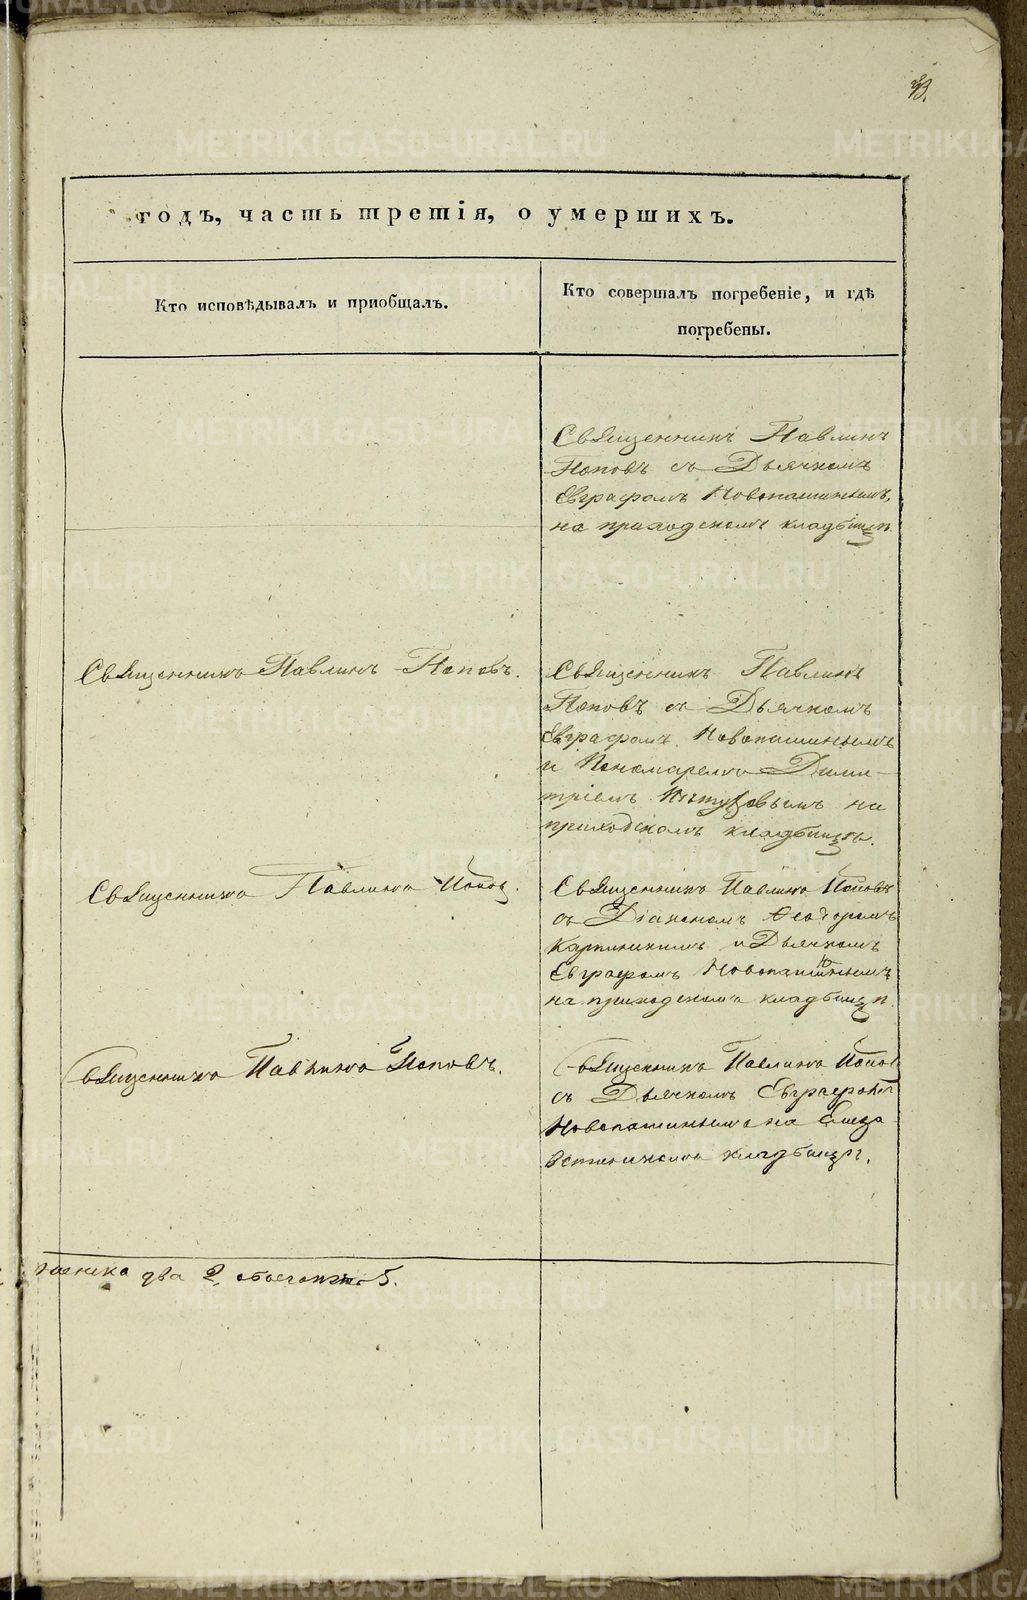 годъ, часть третія, о умершихъ.
Кто исповѣдывалъ и пріобщалъ.
Кто совершалъ погребеніе, и гдѣ
погребены.
Священникъ Павлинъ
Поповъ съ Дьячкомъ
Евграфомъ Новопашинымъ,
на приходскомъ кладбищѣ.
Священникъ Павлинъ Поповъ.
Священникъ Павлинъ
Поповъ съ Дьячкомъ
Евграфомъ Новопашинымъ
и Пономаремъ Дими-
тріемъ Пѣтуховымъ на
приходскомъ кладбищѣ.
Священникъ Павлинъ Попов.
Священникъ Павлинъ Поповъ
съ Діакономъ Ѳеодоромъ
и Дьячкомъ
Евграфомъ Новопашинымъ
на приходскомъ кладбищѣ.
Священникъ Павлинъ Поповъ.
Священникъ Павлинъ Попов
съ Дьячкомъ Евграфомъ
Новопашинымъ на
кладбищѣ.
два 2, обоего 5.
METRIKI.GASO-URAL.RU